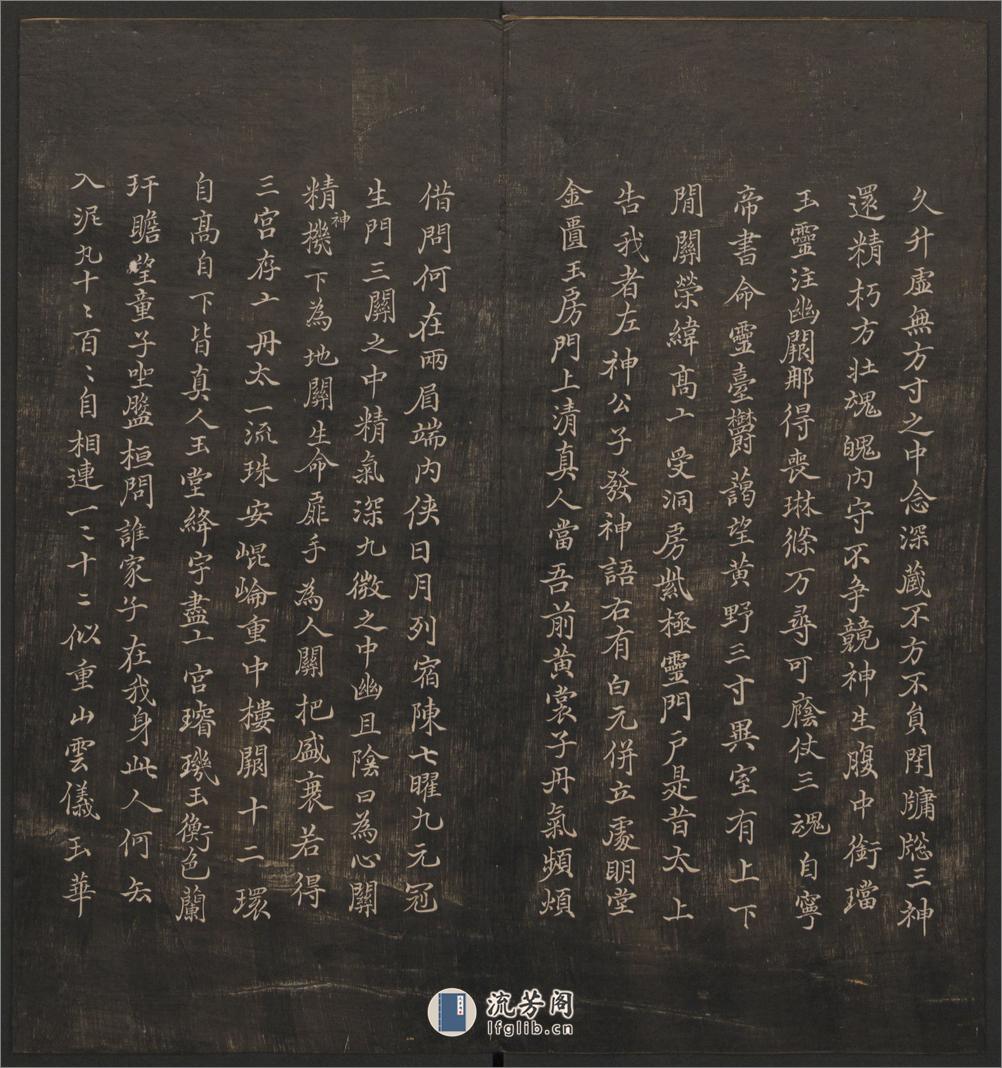 久升虛無方寸之中念深藏不方不負閑牗牎三神
還精朽方壯魂魄內守不争競神生腹中銜璫
玉靈注幽闕那得喪琳條万尋可廕仗三魂自寧
帝書命靈臺欝藹望黄野三寸異室有上下
閒關榮緯高二受洞房紫極靈門戶是昔太上
告我者左神公子發神語右有白元併立處明堂
金匱玉房門上清真人當吾前黄裳子丹氣頻煩
借問何在兩眉端內侠日月列宿陳七曜九元冠
生門三關之中精氣深九微之中幽且陰口為心關
精神機下為地關生命扉手為人關把盛衰若得
三宮存二丹太一流珠安崐崘重中樓闕十二環
自髙自下皆真人玉堂絳宇盡二宮璿璣玉衡色蘭
玕瞻望童子坐盤桓問誰家子在我身此人何去
入泥丸十〻百〻自相連一〻十二似重山雲儀玉華
流芳阁
lfglib.cn